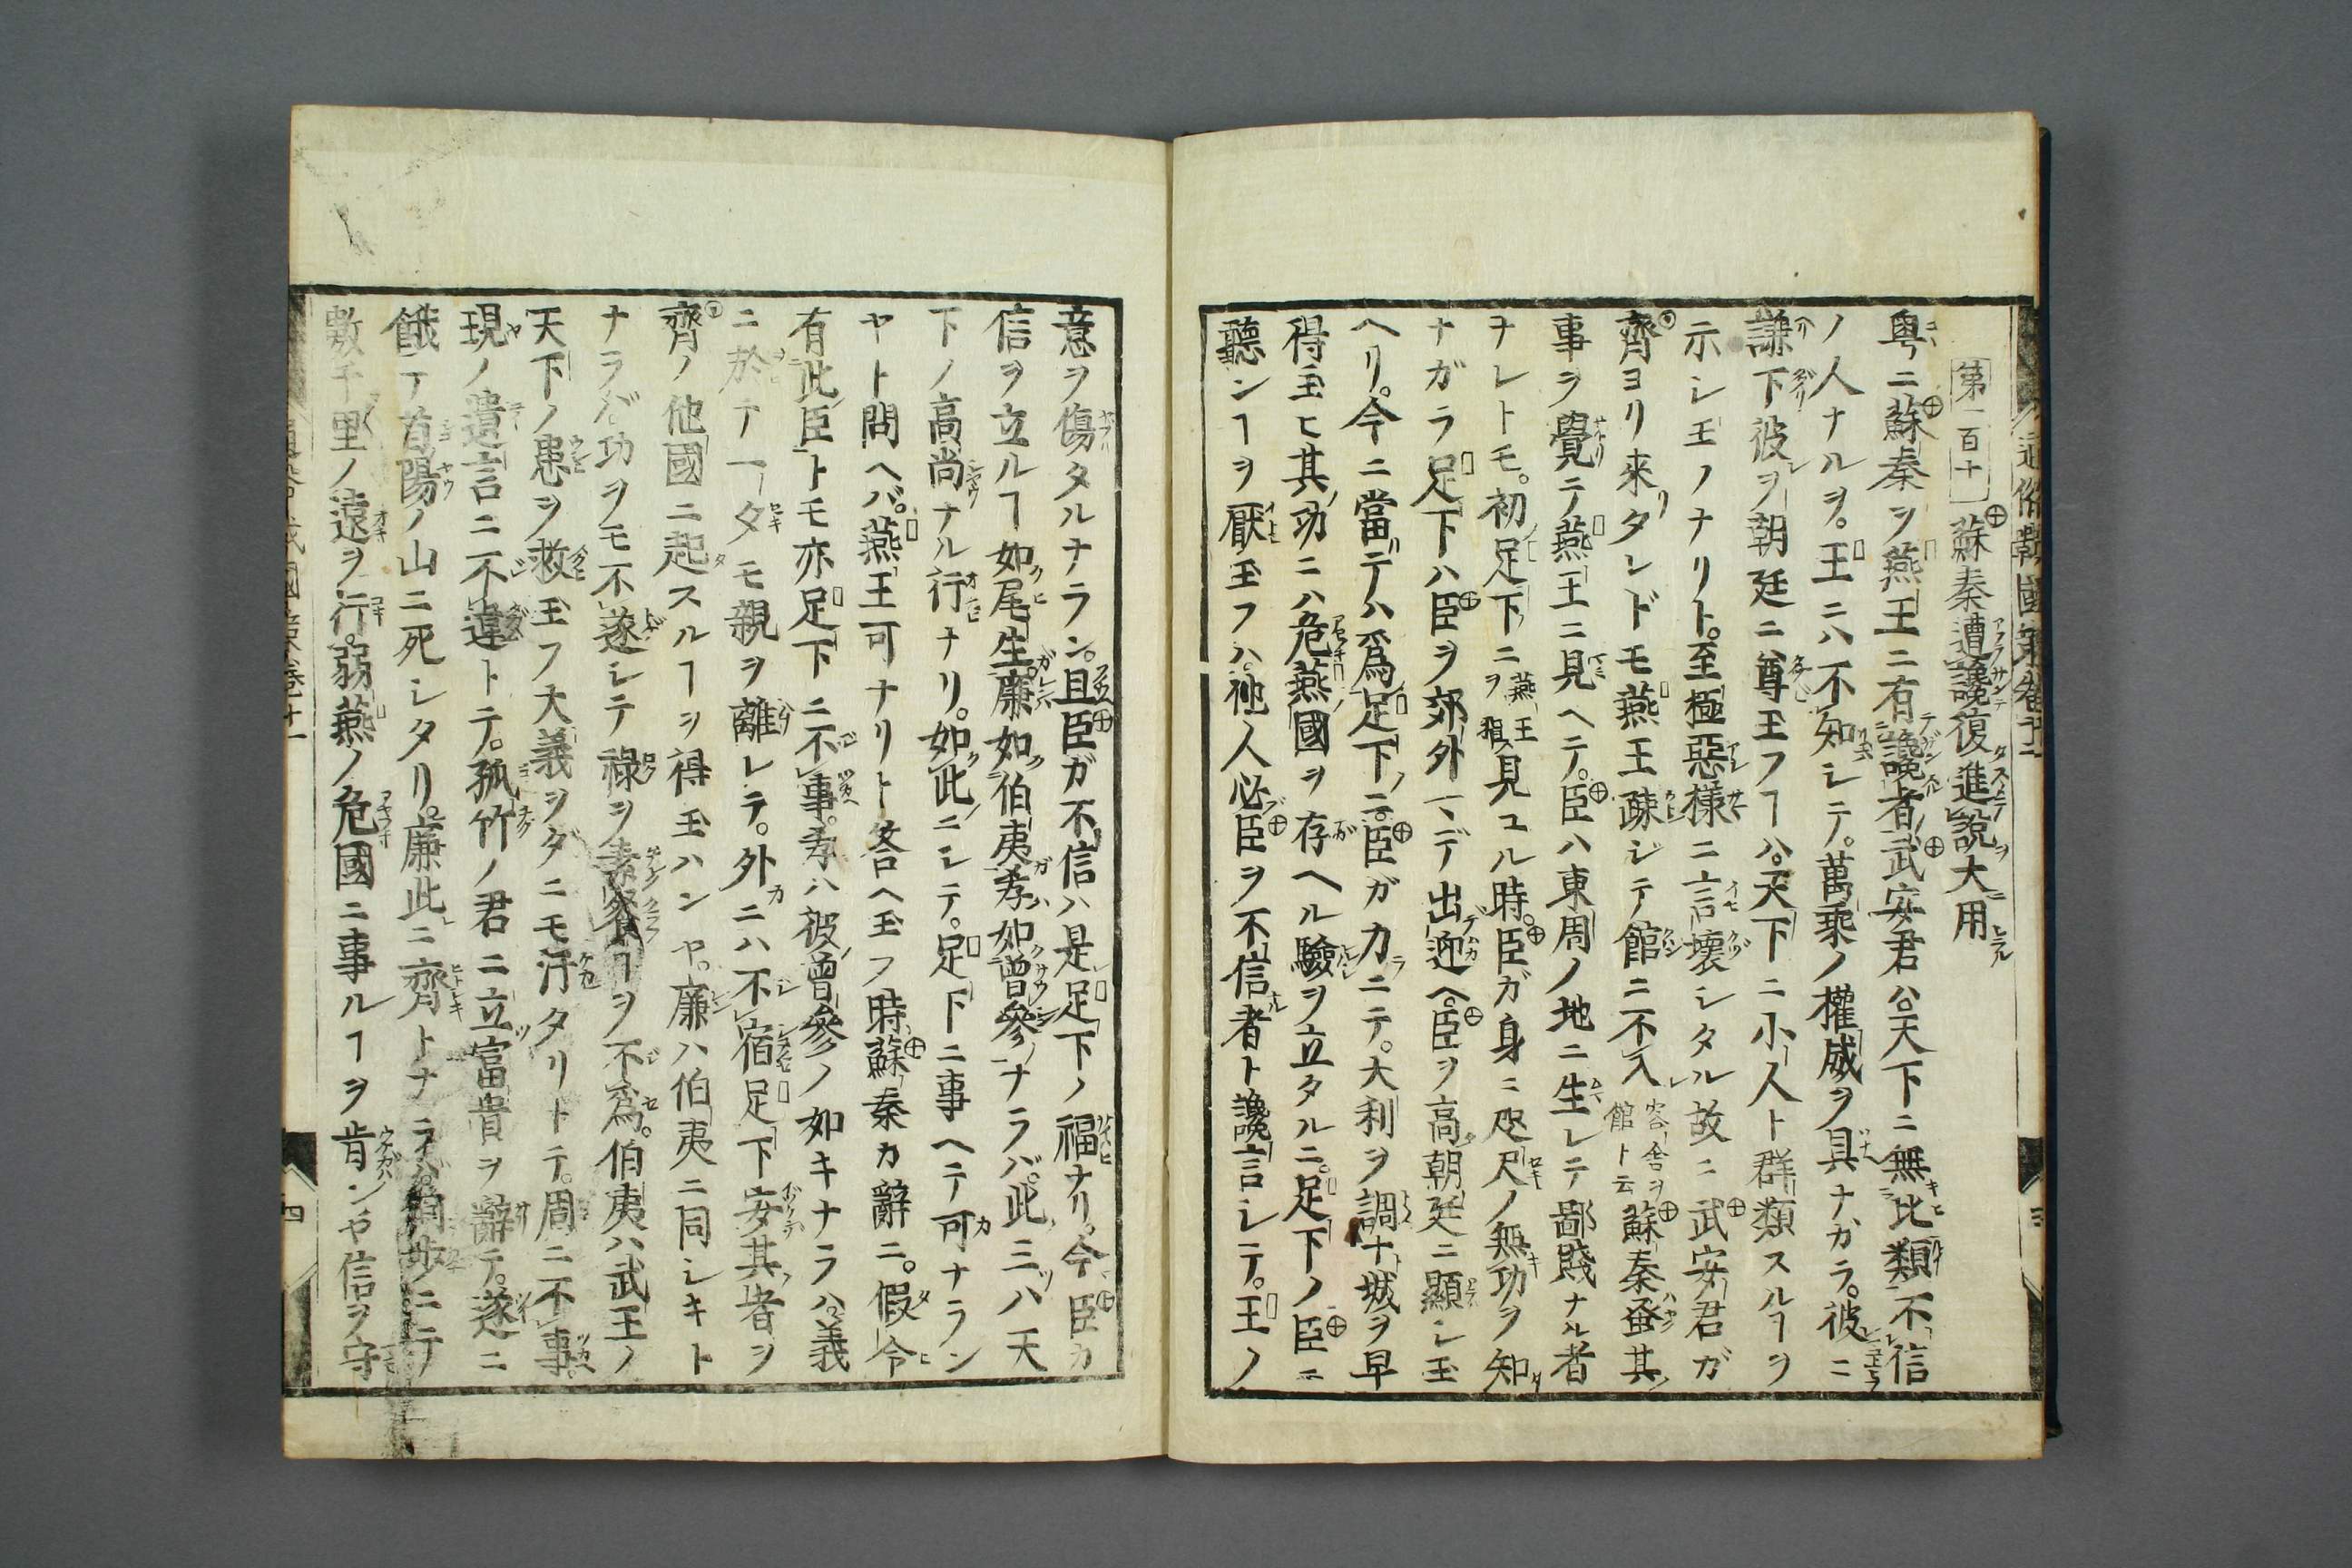 第一百十一 蘇秦遭讒復進說大用
粤ニ蘇秦ヲ燕王ニ有讒者武安君ハ。天下ニ無比類不信
ノ人ナルヲ。王ニハ不知シテ。萬乘ノ權威ヲ具ナガラ。彼ニ
謙下彼ヲ朝廷ニ尊王フヿハ。天下ニ小人ト群類スルヿヲ
示シ王ノナリト。至極惡樣ニ言壞シタル故ニ武安君ガ
齊ヨリ來タレドモ燕王疎ジテ館ニ不入 客舍ヲ館ト云 蘇秦蚤其
事ヲ覺テ燕王ニ見ヘテ。臣ハ東周ノ地ニ生レテ鄙賤ナル者
ヲレトモ。初足下ニ 燕王ヲ狙 見ユル時。臣ガ身ニ咫尺ノ無功ヲ知
ナガラ足下ハ臣ヲ郊外ヽデ出迎ヘ。臣ヲ高朝廷ニ顯シ玉
ヘリ。今ニ當デハ爲足下ニ。臣ガ力ニテ。大利ヲ調十城ヲ早
得玉ヒ其功ニハ危燕國ヲ存ヘル驗ヲ立タルニ。足下ノ臣ニ
聽ンヿヲ厭玉フハ。他人必臣ヲ不信者ト讒言シテ。王ノ
意ヲ傷タルナラン。且臣ガ不信ハ是足下ノ福ナリ。今臣カ
信ヲ立ルヿ如尾生廉如伯夷孝如曾參ナラバ。此三ハ天
下ノ高尚ナル行ナリ。如此ニシテ。足下ニ事ヘテ可ナラン
ヤト問ヘバ。燕王可ナリト答ヘ玉フ時蘇秦カ辭ニ。假令
有此臣トモ亦足下ニ不事。孝ハ彼曾參ノ如キナラハ。義
ニ於テ一夕モ親ヲ離レテ。外ニハ不宿足下安其者ヲ
齊ノ他國ニ起スルヿヲ得玉ハンヤ。廉ハ伯夷ニ同シキト
ナラバ功ヲモ不遂シテ祿ヲ素餐ヿヲ不爲。伯夷ハ武王ノ
天下ノ患ヲ救玉フ大義ヲダニモ汙タリトテ。周ニ不事。
現ノ遺言ニ不違トテ。孤竹ノ君ニ立富貴ヲ辭テ。遂ニ
餓テ首陽ノ山ニ死シタリ。廉此ニ齊トナラバ。步ニテ
數千里ノ遠ヲ行。弱燕ノ危國ニ事ルヿヲ肯ンヤ信ヲ守
四